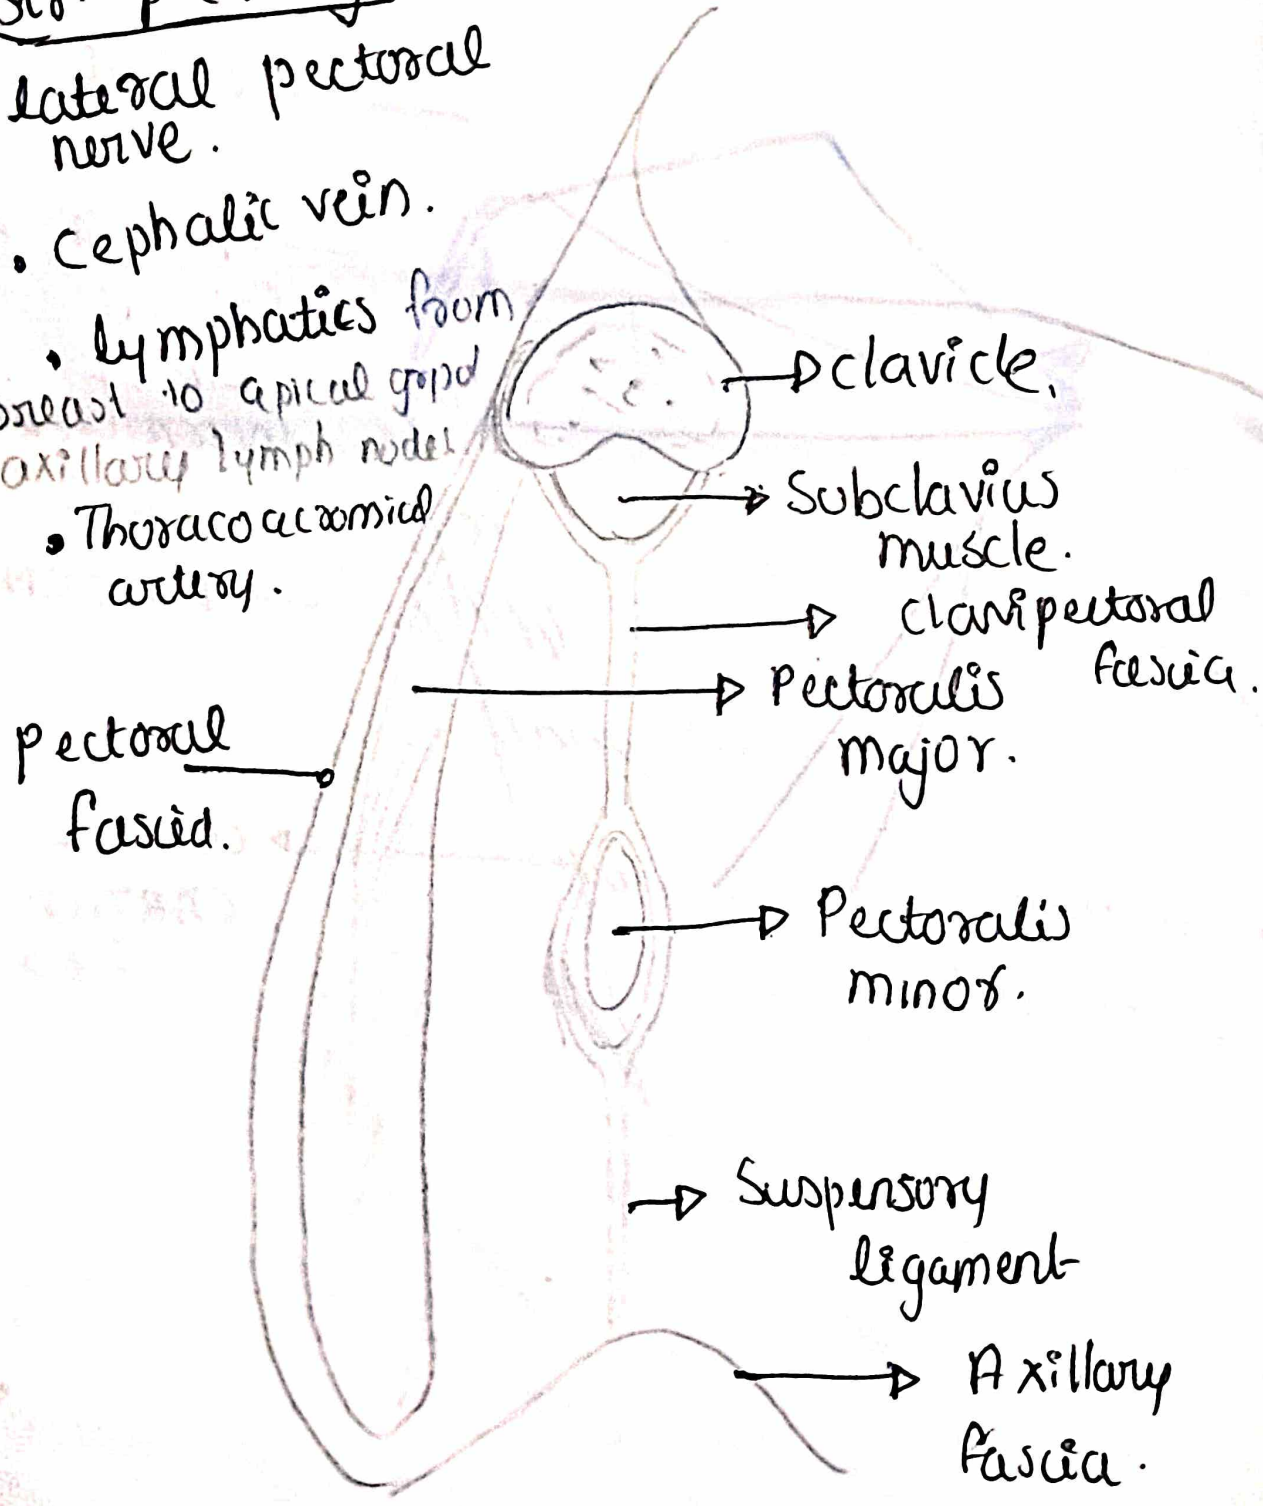 lateral pectoral
nerve.
• Cephalic vein.
• lymphatics from
breast to apical group
axillary lymph nodes
• Thoracoacromial
artery.
clavicle.
Subclavius
muscle.
Clavipectoral
fascia.
Pectoralis
major.
pectoral
fascia.
Pectoralis
minor.
Suspensory
ligament
Axillary
fascia.